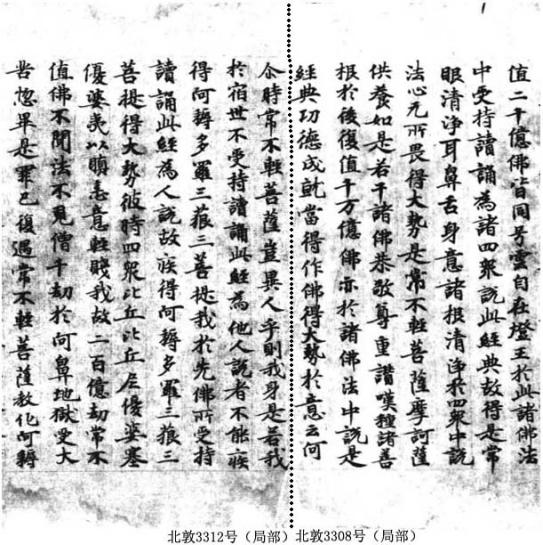 值二千億佛皆同号雲自在燈王於此諸佛法
中受持讀誦為諸四衆説此經典故得是常
眼清淨耳鼻舌身意諸根清淨於四衆中説
法心无所畏得大勢是常不輕菩薩摩訶薩
供養如是若干諸佛恭敬尊重讃嘆種諸善
根於後復值千万億佛亦於諸佛法中説是
經典功德成就當得作佛得大勢於意云何
尒時常不輕菩薩豈異人乎則我身是若我
於宿世不受持讀誦此經為他人説者不能疾
得阿耨多羅三藐三菩提我於先佛所受持
讀誦此經為人説故疾得阿耨多羅三藐三
菩提得大勢彼時四衆比丘比丘尼優婆塞
優婆夷以瞋恚意輕賤我故二百億劫常不
值佛不聞法不見僧千劫於阿鼻地獄受大
苦惱畢是罪已復遇常不輕菩薩教化阿耨
北敦3312号（局部）
北敦3308号（局部）